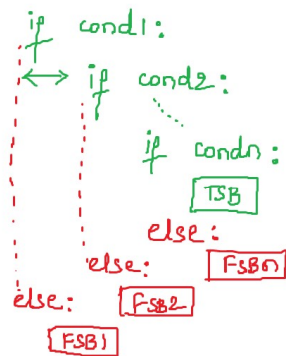 if cond1:
if cond2:
if condn:
TSB
else:
FSBn
else:
FSB2
else:
FSB1